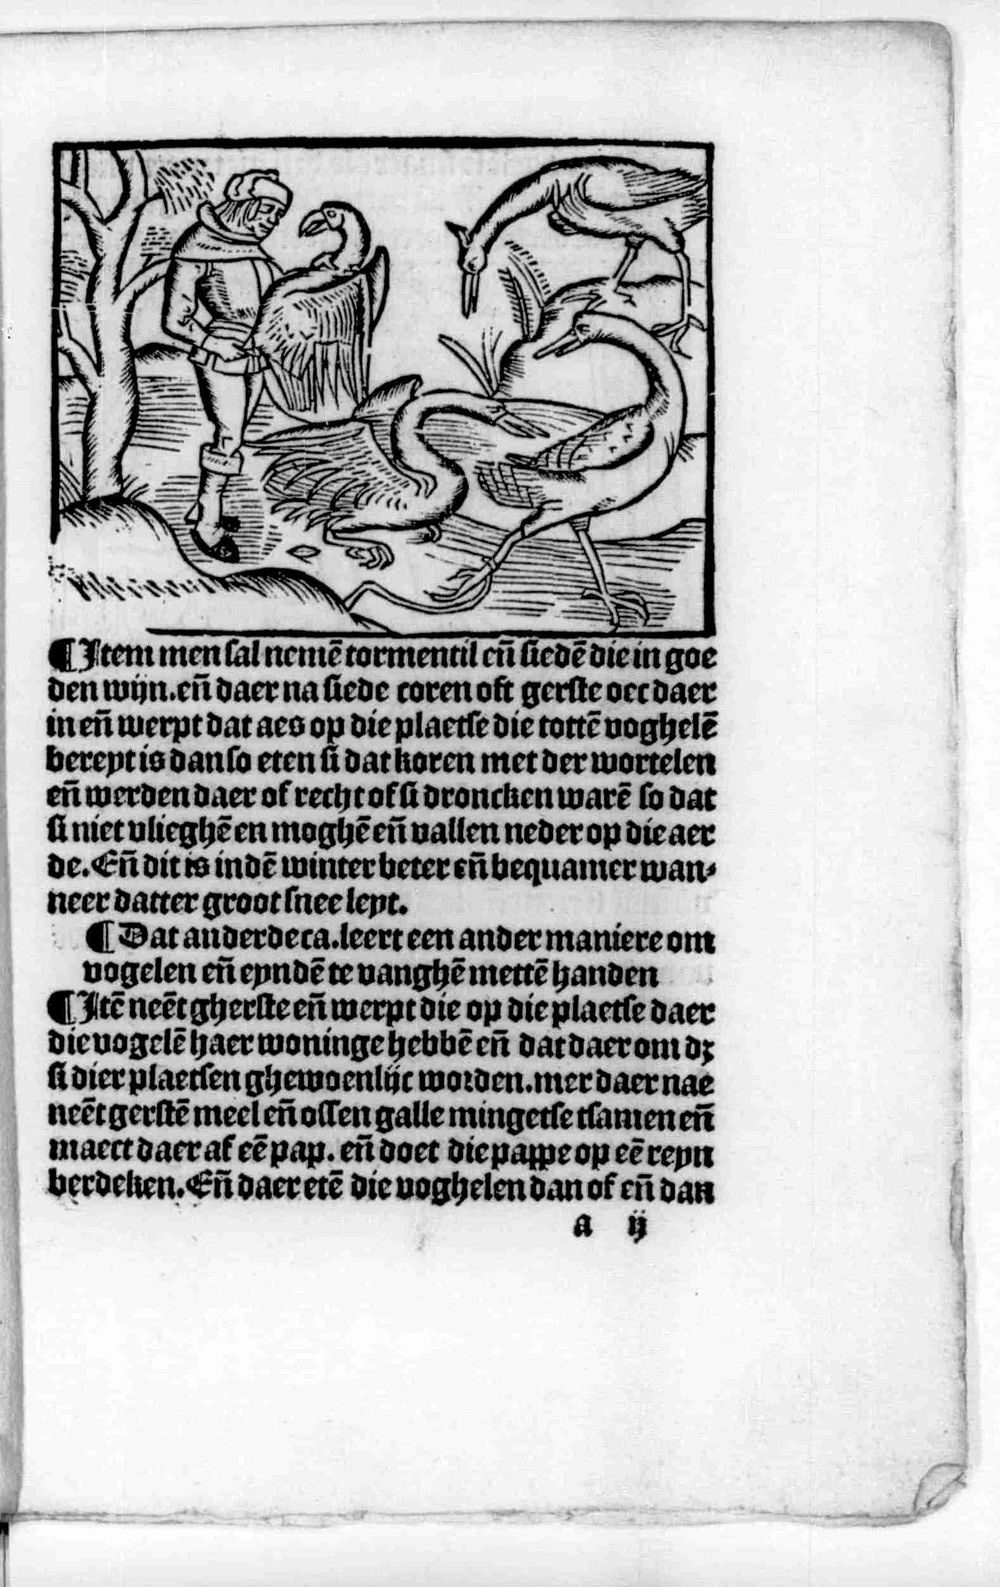 ¶Item men sal nemē tormentil eñ siedē die in goe
den wijn.eñ daer na siede coren oft gerste oec daer
in eñ werpt dat aes op die plaetse die tottē voghelē
bereyt is dan so eten si dat koren met der wortelen
eñ werden daer of recht of si droncken warē so dat
si niet vlieghē en moghē eñ vallen neder op die aer
de. Eñ dit is in dē winter beter eñ bequamer wan⸗
neer datter groot snee leyt.
¶Dat ander de ca.leert een ander maniere om
vogelen eñ eyndē te vanghē mettē handen
¶Itē neēt gherste eñ werpt die op die plaetse daer
die vogelē haer woninge hebbē eñ dat daer om dꝫ
si dier plaetsen ghewoenlijc worden.mer daer nae
neēt gerstē meel eñ ossen galle mingetse tsamen eñ
maect daer af eē pap. eñ doet die pappe op eē reyn
berdeken. Eñ daer etē die voghelen dan of eñ dan
a ij